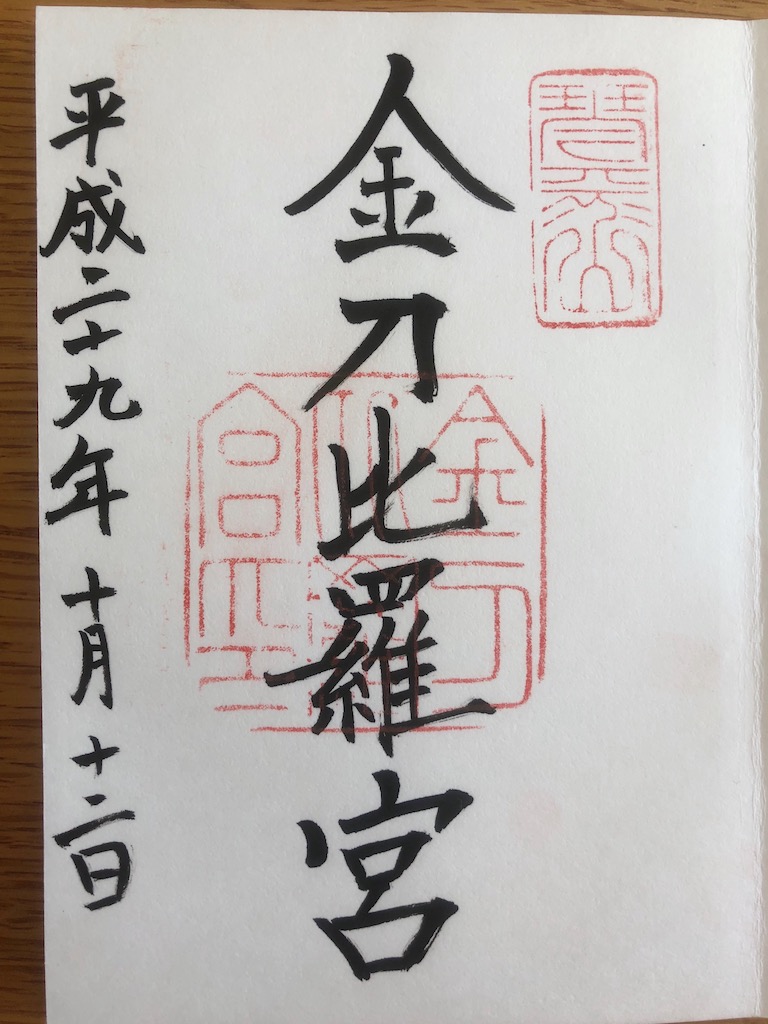 琴平山
金刀比羅宮
金刀
比羅
宮
平成二十九年十月十二日